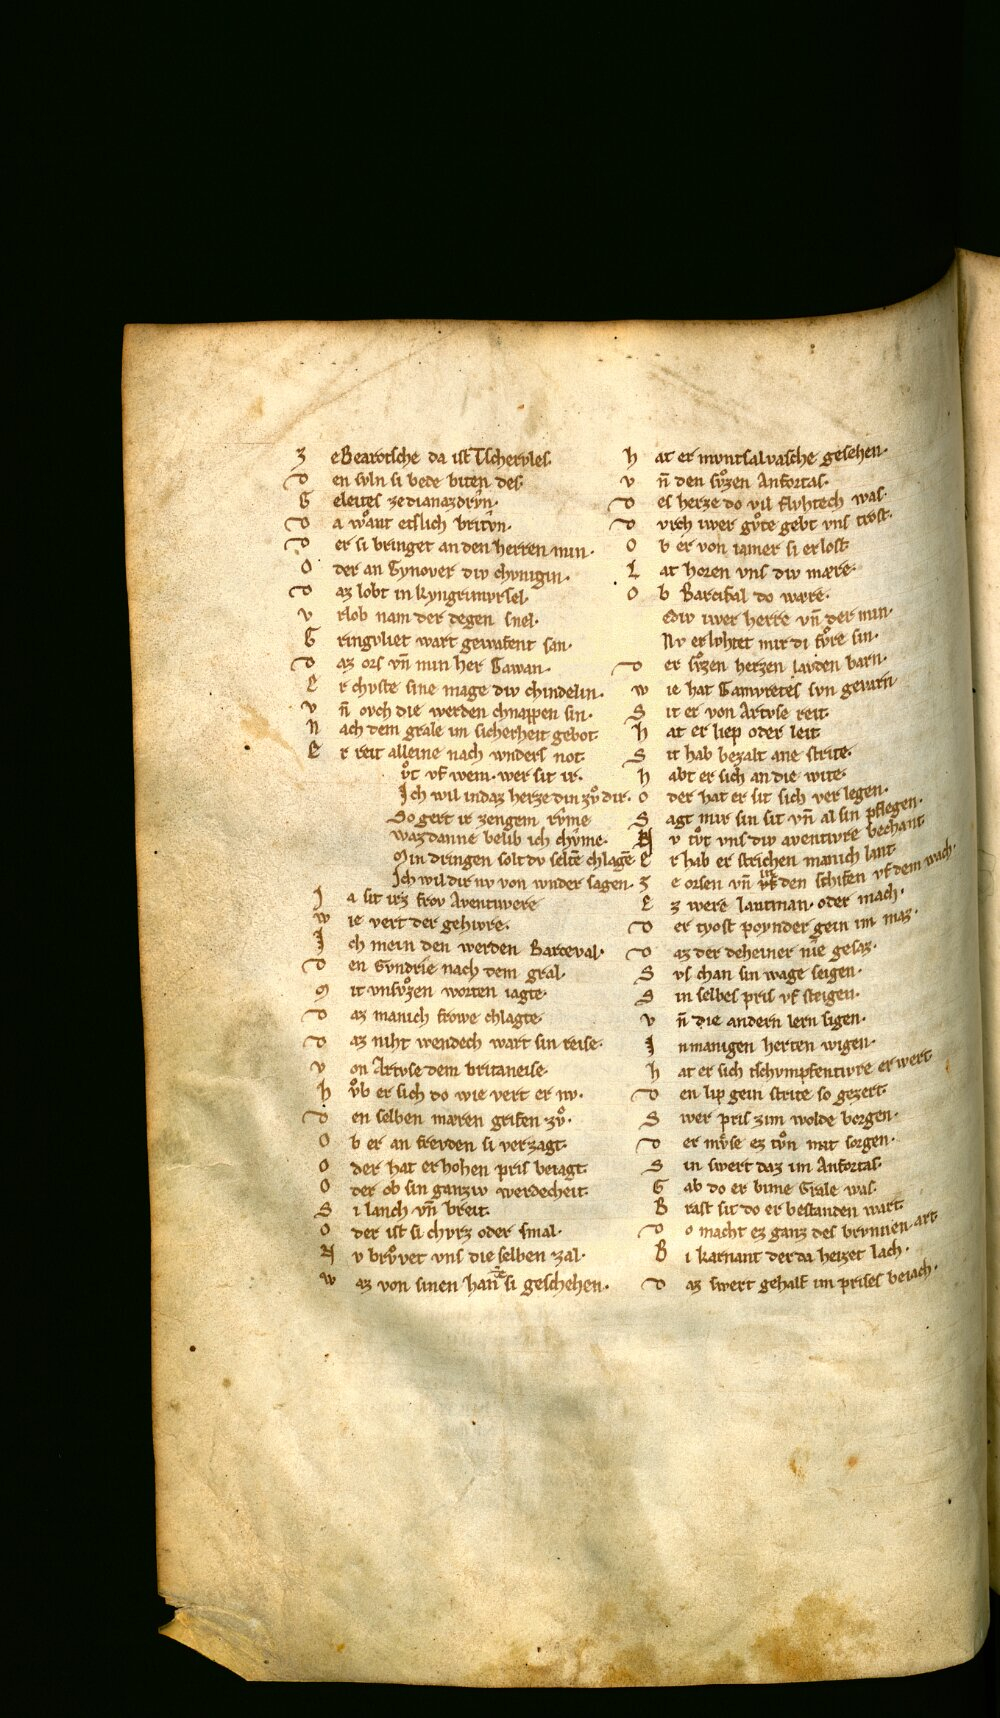 Z eBearotsche da ist Tscherules.
D en suln si bede biten des.
G eleites zedianazdrůn.
D a wͦant etslich britvn.
D er si bringet an den herren min.
O der an Gynover div chvnigin.
D az lobt in kyngrimvrsel.
V rlob nam der degen snel.
G ringvliet wart gewafent san.
D az ors vn̄ min her Gawan.
E r chvste sine mage div chindelin.
V n̄ ovch die werden chnappen sin.
N ach dem grale im sicherheit gebot
E r reit alleine nach wnders not.
vͦt vf wem. wer sit ir.
Ich wil indaz herze din zvͦ dir.
So gert ir zengem rv̂me
waz danne belib ich chv̂me.
Min dringen solt dv selt̄e chlagē
Ich wil dir nv von wnder sagen.
I a sit irz frov Aventwere
W ie vert der gehivre.
I ch mein den werden Barceval.
D en Gvndrie nach dem gral.
M it vnsvͦzen worten iagte.
D az manich frowe chlagte.
D az niht wendech wart sin reise.
V on Artvse dem britaneise.
H vͦb er sich do wie vert er nv.
D en selben mæren grifen zvͦ.
O b er an frevden si verzagt.
O der hat er hohen pris beiagt.
O der ob sin ganziv werdecheit.
S i lanch vn̄ breit.
O der ist si chvrz oder smal.
N v brvͦvet vns die selben zal.
W az von sinen han̄ si geschehen.
H at er mvntsalvasche gesehen.
V n̄ den svͦzen Anfortas.
D es herze do vil sivhtech was.
D vrch iwer gvͦte gebt vns trost.
O b er von iamer si erlost.
L at horen vns div mære.
O b Barcifal do wære.
Ediv iwer herre vn̄ der min.
Nv erlvhtet mir di fvͦre sin.
D er svͦzen herzen lavden barn.
W ie hat Gamvretes svn gevarn
S it er von Artvse reit.
H at er liep oder leit
S it hab bezalt ane strite.
H abt er sich an die wite.
O der hat er sit sich ver legen.
S agt mir sin sit vn̄ al sin pflegen.
N v tvͦt vns div aventivre bechant
E r hab er strichen manich lant
Z e orsen vn̄ in den schifen vf dem wach.
E z were lantman. oder mach.
D er tyost poynder gein im maz.
D az der deheiner nie gesaz.
S vs chan sin wage seigen.
S in selbes pris vf steigen.
V n̄ die andern lern sigen.
I nmanigen herten wigen.
H at er sich tschvmpfentivre er wert
D en lip gein strite so gezert.
S wer pris zim wolde borgen.
D er mvͤse ez tvͦn mit sorgen.
S in swert daz im Anfortas.
G ab do er bime Grale was.
B rast sit do er bestanden wart.
D o macht ez ganz des brvnnen art
B i karnant der da heizet lach.
D az swert gehalf im prises beiach.